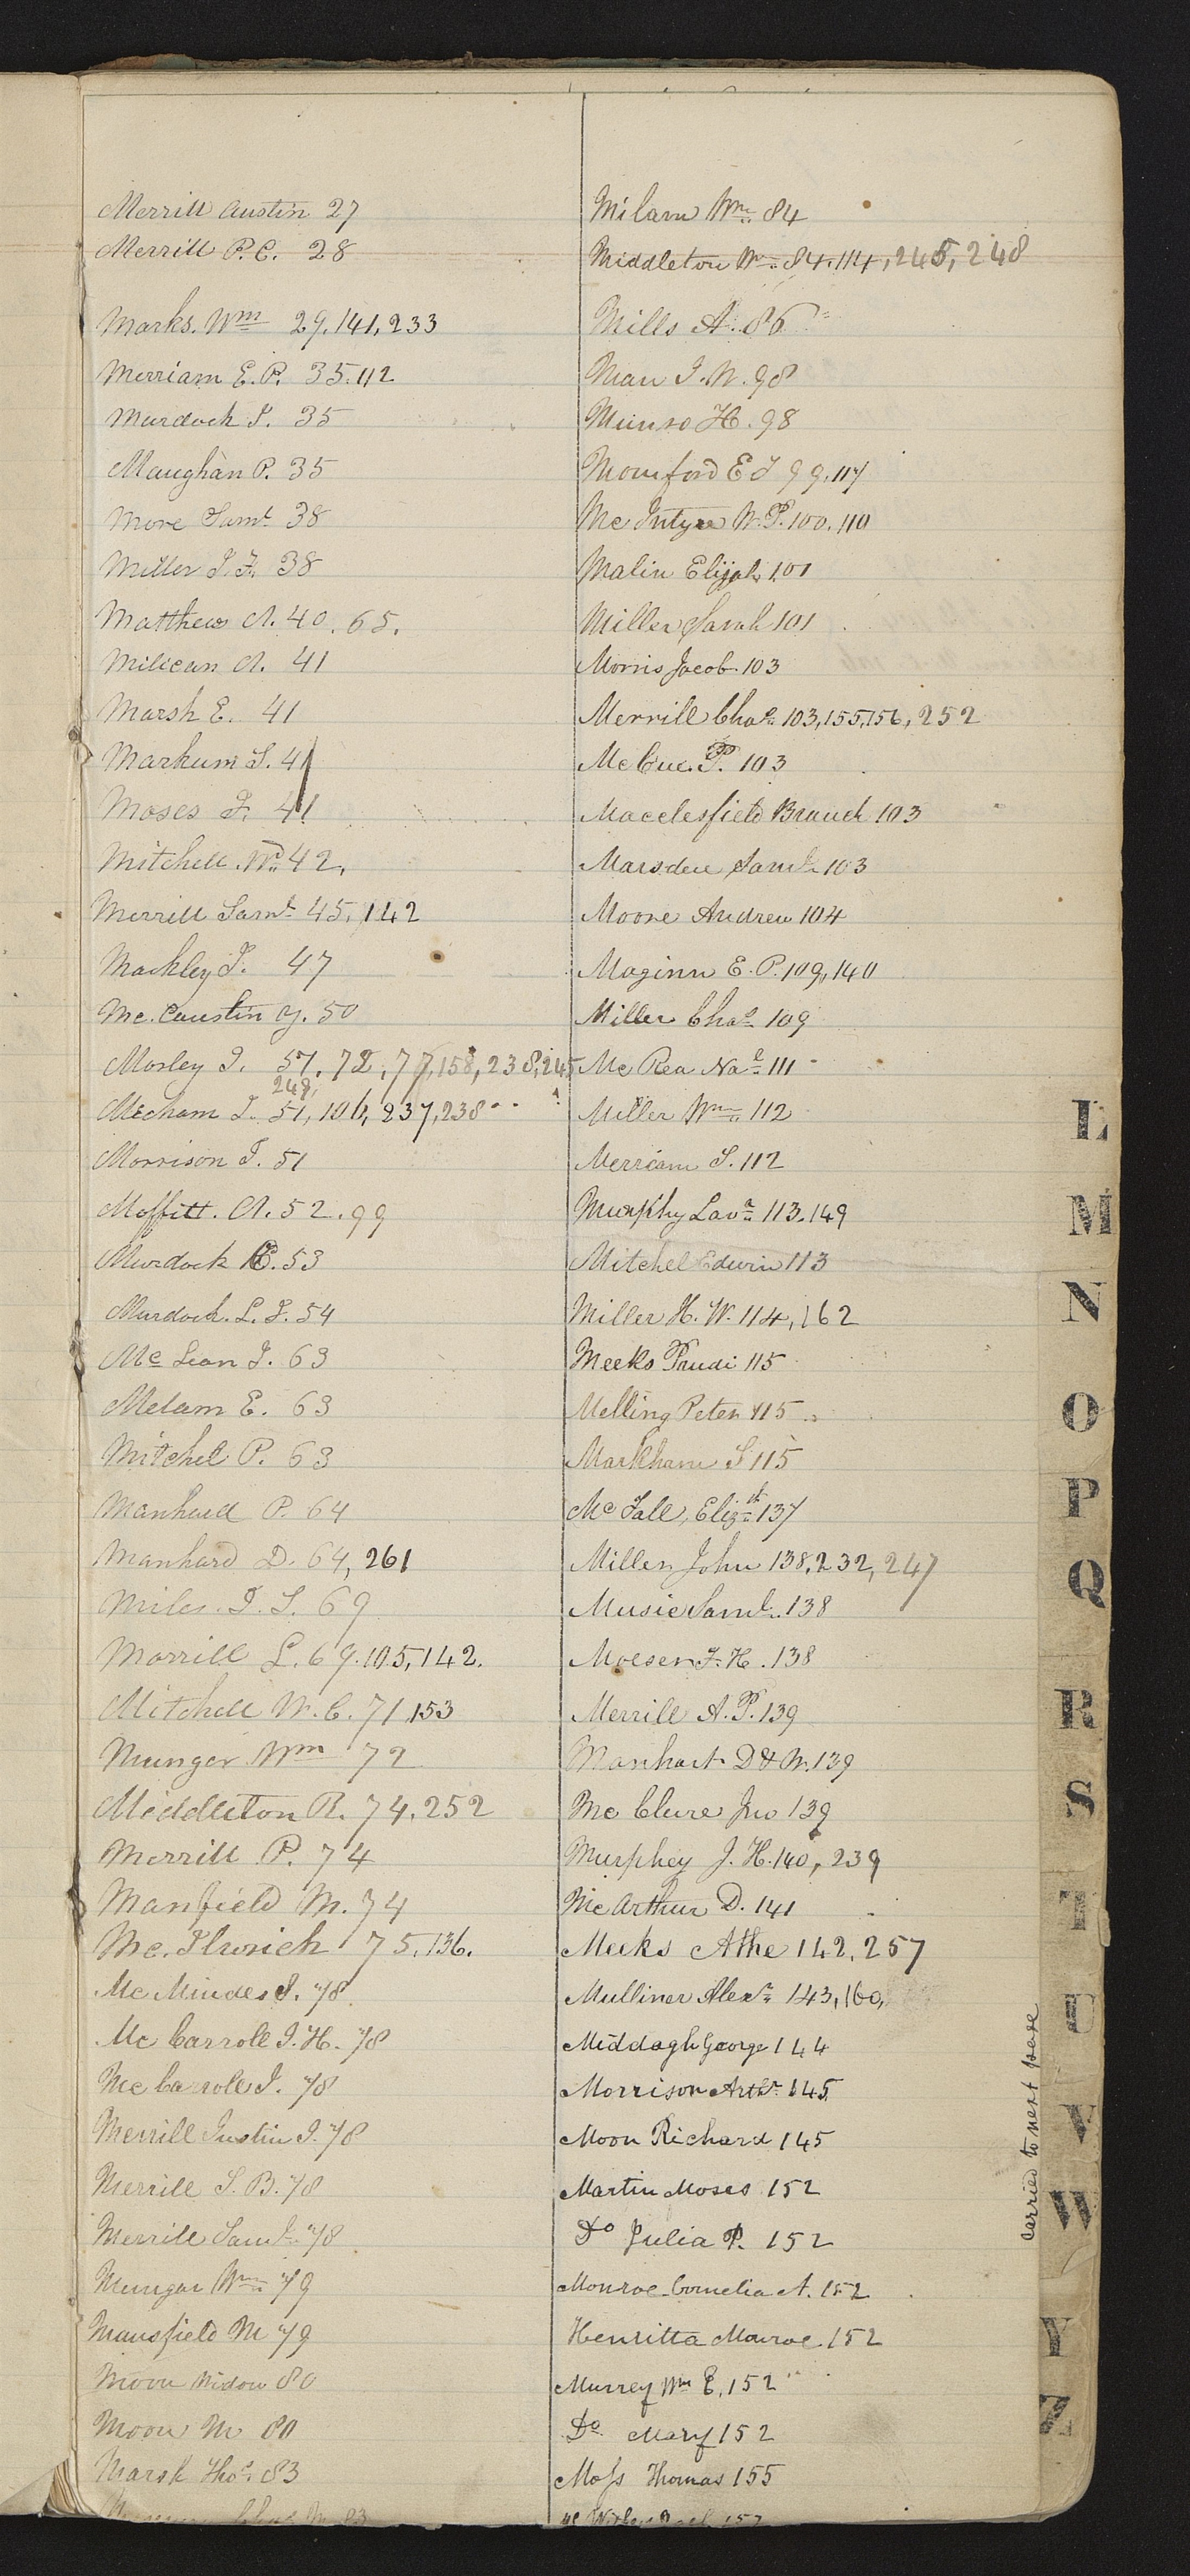 Merrill Austin 27
Merrill P. C. 28
Marks. Wm 29, 141, 233
Merriam E. P. 35. 112
Murdock J. 35
Maughan P. 35
More Saml 38
Miller J. F. 38
Matthew A. 40. 65.
Milican A. 41
Marsh E. 41
Markum S. 41
Moses J. 41
Mitchell. Wm 42.
Merrill Saml 45, 142
Mackley J. 47
Mc. Caustin Y. 50
Morley I. 51, 72, 77, 158, 238, 245
248,
Mecham J. 51, 106, 237, 238
Morrison J. 51
Moffitt. A. 52. 99
Murdock 53
Murdock. L. J. 54
Mc Lean J. 63
Melam E. 63
Mitchel P. 63
Manhard P. 64
Manhard D. 64, 261
Miles. I. S. 69
Morrill L. 69. 105, 142.
Mitchell W. C. 71 153
Munger Wm 72
Middleton R. 74, 252
Merrill P. 74
Manfield M. 74
Mc. 75, 136.
Mc 78
Mc Carroll J. H. 78
Mc Carroll J. 78
Merrill Justin J. 78
Merrill S. B. 78
Merrill Saml 78
Mungar Wm 79
Mansfield M 79
Moon Widow 80
Moon M 80
Marsh Thos. 83
Milam Wm 84
Middleton Wm 84. 114, 245, 248
Mills A. 86
Man J. W. 98
Munro H. 98
Momford E J 99. 117
Mc Intyre W. P. 100. 110
Malin Elijah 101
Miller Sarah 101
Morris Jacob 103
Merrill Chas 103, 155, 156, 252
Mc Cue. P. 103
Macclesfield Branch 103
Marsden Saml 103
Moore Andrew 104
Maginn E. P. 109, 140
Miller Chas 109
Mc Rea Nal 111
Miller Wm 112
Merriam S. 112
Murphy Lava 113. 149
Mitchel Edwin 113
Miller H. W. 114, 162
Meeks Prudi 115
Melling Peter 115
Markham S 115
Mc Fall, Elizth 137
Miller John 138, 232, 247
Music Saml. 138
Moesen J. H. 138
Merrill A. P. 139
Manhart D & W. 139
Mc Clure Jno 139
Murphey J. H. 140, 239
Mc Arthur D. 141
Meeks Athe 142, 257
Mulliner Alexr 143, 160,
Middagh George 144
Morrison Arthr 145
Moon Richard 145
Martin Moses 152
Do Julia P. 152
Monroe Cornelia A. 152
Henritta Monroe 152
Murrey Wm E. 152
Do Mary 152
Moss Thomas 155
carried to next page
L
M
N
O
P
Q
R
S
T
U
V
W
Y
Z